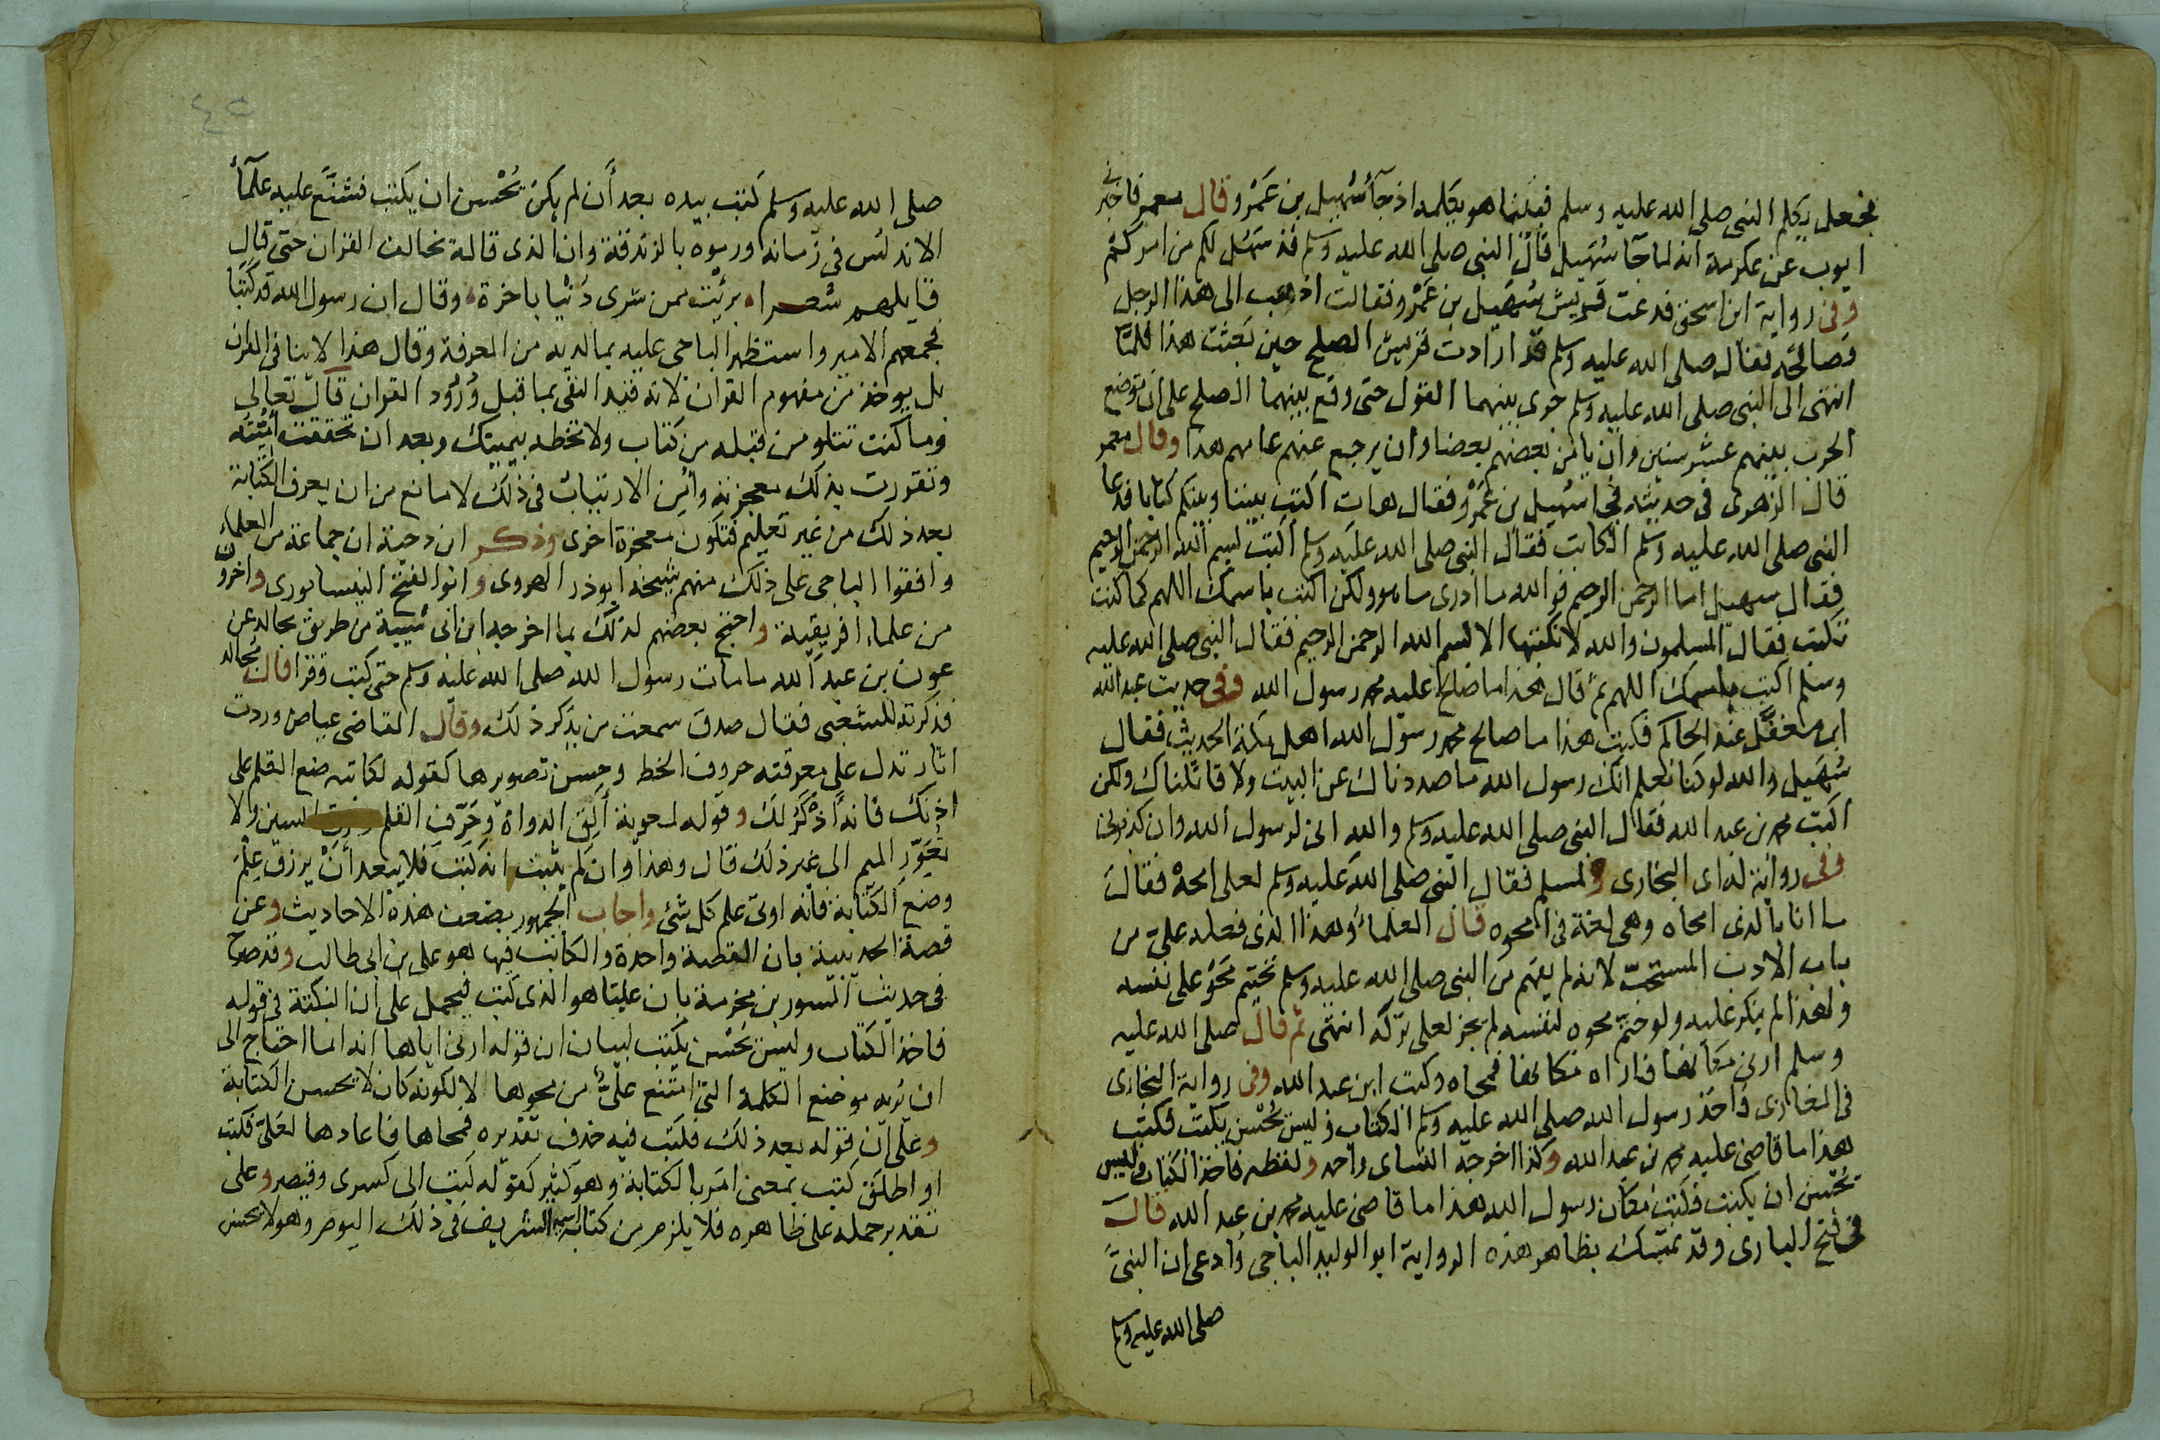 فجعل يكلم النبى صلى الله عليه وسلم فبينما هو يكلمه اذ جآ سُهيل بن عَمْرو قال معمر فاخبرنى
ايوب عن عكرمة انه لما جآ سُهيل قال النبى صلى الله عليه وسلم قد سَهُل لكم من امركم
وفى رواية ابن اسحق فدعت قريش سُهَيل بن عَمْرو فقالت اذهب الى هذا الرجل
فصالحه فقال صلى الله عليه وسلم قد ارادت قريش الصلح حين بَعثت هذا فلمَّا
انتهى الى النبى صلى الله عليه وسلم جرى بينهما القول حتى وقع بينهما الصلح على ان توضع
الحرب بينهم عشر سنين وان يامن بعضهم بعضا وان يرجع عنهم عامهم هذا وقال معمر
قال الزهرى فى حديثه فجآ سُهيل بن عَمْرو فقال هات اكتب بيننا وبينكم كتابا فدعا
النبى صلى الله عليه وسلم الكاتب فقال النبى صلى الله عليه وسلم اكتب بسم الله الرحمن الرحيم
فقال سهيل اما الرحمن الرحيم فوالله ما ادرى ما هو ولكن اكتب باسمك اللهم كما كنت
تكتب فقال المسلمون والله لا نكتبها الا بسم الله الرحمن الرحيم فقال النبى صلى الله عليه
وسلم اكتب باسمك اللهم ثم قال هذا ما صالح عليه محمد رسول الله وفى حديث عبد الله
ابن مغفَّل عند الحاكم فكتب هذا ما صالح محمد رسول الله اهل مكة الحديث فقال
سُهَيل والله لو كنا نعلم انك رسول الله ما صددناك عن البيت ولا قاتلناك ولكن
اكتب محمد بن عبد الله فقال النبى صلى الله عليه وسلم والله انى لرسول الله وان كذبتمونى
وفى رواية له اى البخارى ولمسلم فقال النبى صلى الله عليه وسلم لعلى امحهْ فقال
ما انا بالذى امحاه وهى لغة فى امحوه قال العلمآ وهذا الذى فعله علىّ من
باب الادب المستحبّ لانه لم يفهم من النبى صلى الله عليه وسلم تحتيم مَحْوِ على نفسه
ولهذا لم ينكر عليه ولو حتم محوه لنفسه لم يجز لعلى تركه انتهى ثم قال صلى الله عليه
وسلم ارنى مكانها فاراه مكانها فمحاه وكتب ابن عبد الله وفى رواية البخارى
فى المغازى فاخذ رسول الله صلى الله عليه وسلم الكتاب وليس يُحْسِن يكتب فكتب
هذا ما قاضى عليه محمد بن عبد الله وكذا اخرجه النساى واحمد ولفظه فاخذ الكتاب وليس
يُحْسِن ان يكتب فكتب مكان رسول الله هذا ما قاضى عليه محمد بن عبد الله قال
فى فتح البارى وقد تمسك بظاهر هذه الرواية ابو الوليد الباجى فادعى ان النبىّ
صلى الله عليه وسلم
٤٥
صلى الله عليه وسلم كتب بيده بعد أن لم يكن يُحْسن ان يكتب فشنَّع عليه علمآءُ
الاندلس فى زمانه ورموه بالزندقة وان الذى قاله يخالف القران حتى قال
قايلهم شعرا برئتُ ممن شرى دُنيا باخرة وقال ان رسول الله قد كَتَبا
فجمعهم الامير واستظهر الباجى عليه بما لديه من المعرفة وقال هذا لا ينافى القران
بل يوخذ من مفهوم القران لانه قيد النفى بما قبل وُرُود القران قال تعالى
وما كنت تتلو من قبله من كتاب ولا تخطه بيمينك وبعد ان تحققت امّيّته
وتقررت بذلك معجزته وامُن الارتياب فى ذلك لا مانع من ان يعرف الكتابة
بعد ذلك من غير تعليم فتكون معجزة اخرى وذكر ابن دحية ان جماعة من العلماء
وافقوا الباجى على ذلك منهم شيخه ابو ذر الهروى وابو الفتح النيسابورى واخرون
من علماء افريقية واحتج بعضهم لذلك بما اخرجه ابن ابى شيبة من طريق مجالد عن
عون بن عبد الله ما مات رسول الله صلى الله عليه وسلم حتى كتب وقرا قال مجالد
فذكرته للشعبى فقال صدق سمعت من يذكر ذلك وقال القاضى عياض وردت
اثار تدل على معرفته حروف الخط وحسن تصويرها كقوله لكاتبه ضع القلم على
اذنك فانه أذْكَرُ لك وقوله لمعوية أَلِق الدواة وحَرِّف القلم السين ولا
تُعَوّر الميم الى غير ذلك قال وهذا وان لم يثبت انه كتب فلا يبعد أنْ يرزق عِلْمَ
وضع الكتابة فانه اوتى علم كل شئ واجاب الجمهور بضعف هذه الاحاديث وعن
قصة الحديبية بان القصة واحدة والكاتب فيها هو على بن ابى طالب وقد صرح
فى حديث المسور بن مخرمة بان عليّا هو الذى كتب فيحمل على ان النكتة فى قوله
فاخذ الكتاب وليس يُحْسِن يكتب لبيان ان قوله ارنى اياها انه انما احتاج الى
ان يُريه موضع الكلمة التى امتنع علىّ من محوها الا لكونه كان لا يحسن الكتابة
وعلى ان قوله بعد ذلك فكتب فيه حذف تقديره فمحاها فاعادها لعَلىّ فكتب
او اطلق كتب بمعنى امر بالكتابة وهو كثير كقوله كتب الى كسرى وقيصر وعلى
تقدير حمله على ظاهره فلا يلزم من كتابة اسمه الشريف فى ذلك اليوم وهو لا يحسن